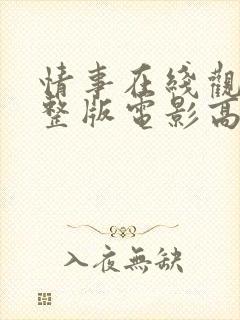 情事在綫觀
整版電影高
入夜無缺